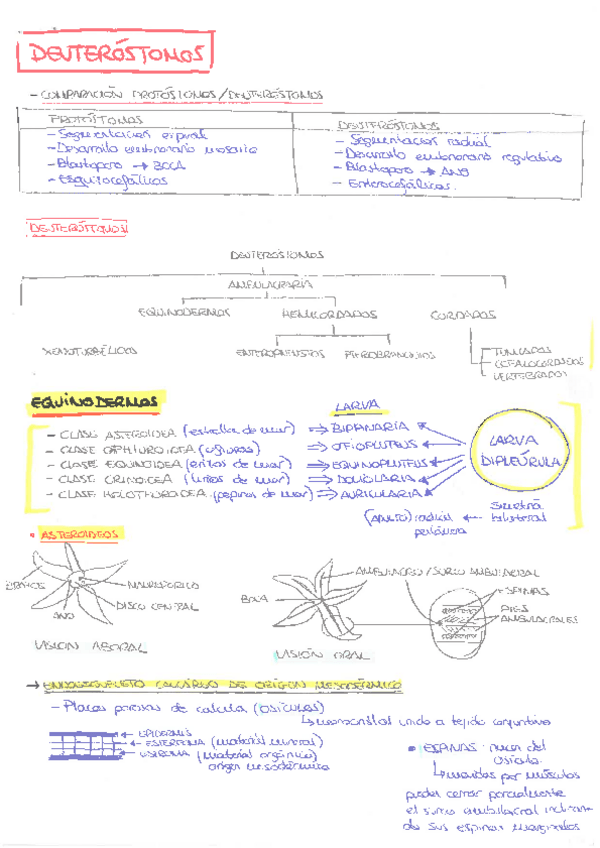 DEUTERÓSTOMOS
- COMPARACIÓN PROTÓSTOMOS / DEUTERÓSTOMOS
PROTÓSTOMOS
- Segmentación espiral
- Desarrollo embrionario mosaico
- Blastoporo → BOCA
- Esquizocofálicos
DEUTERÓSTOMOS
- Segmentación radial
- Desarrollo embrionario regulativo
- Blastoporo → ANO
- Enterocofálicos.
DEUTERÓSTOMOS
DEUTERÓSTOMOS
AMBULACRARIA
EQUINODERMOS HEMICORDADOS CORDADOS
XENOTURBÉLIDOS ENTEROPNEUSTOS PTEROBRANQUIOS
TUNICADOS
CEFALOCORDADOS
VERTEBRADOS
EQUINODERMOS
LARVA
- CLASE ASTEROIDEA (estrella de mar) ⇒ BIPINARIA
- CLASE OPHIUROIDEA (ofiuras) ⇒ OFIOPLUTEUS
- CLASE EQUINOIDEA (erizos de mar) ⇒ EQUINOPLUTEUS
- CLASE CRINOIDEA (lirios de mar) ⇒ DOLIOLARIA
- CLASE HOLOTHUROIDEA (pepinos de mar) ⇒ AURICULARIA
LARVA
DIPLEÚRULA
(ADULTO): radial ← Simetría bilateral
• ASTEROIDEOS
BRAZOS
MADREPÓRICO
DISCO CENTRAL
ANO
VISIÓN ABORAL
BOCA
AMBULACRO / SURCO AMBULACRAL
ESPINAS
PIES
AMBULACRALES
VISIÓN ORAL
→ ENDOESQUELETO CALCÁREO DE ORIGEN MESODÉRMICO
- Placas porosas de calcita (OSÍCULOS)
↳ unido a tejido conjuntivo
EPIDERMIS
ESTEREOMA (material mineral)
ESTROMA (material orgánico)
origen mesodérmico
• ESPINAS: nacen del
osículo
↳ movidas por músculos
pueden cerrar parcialmente
el surco ambulacral
de sus espinas marginales